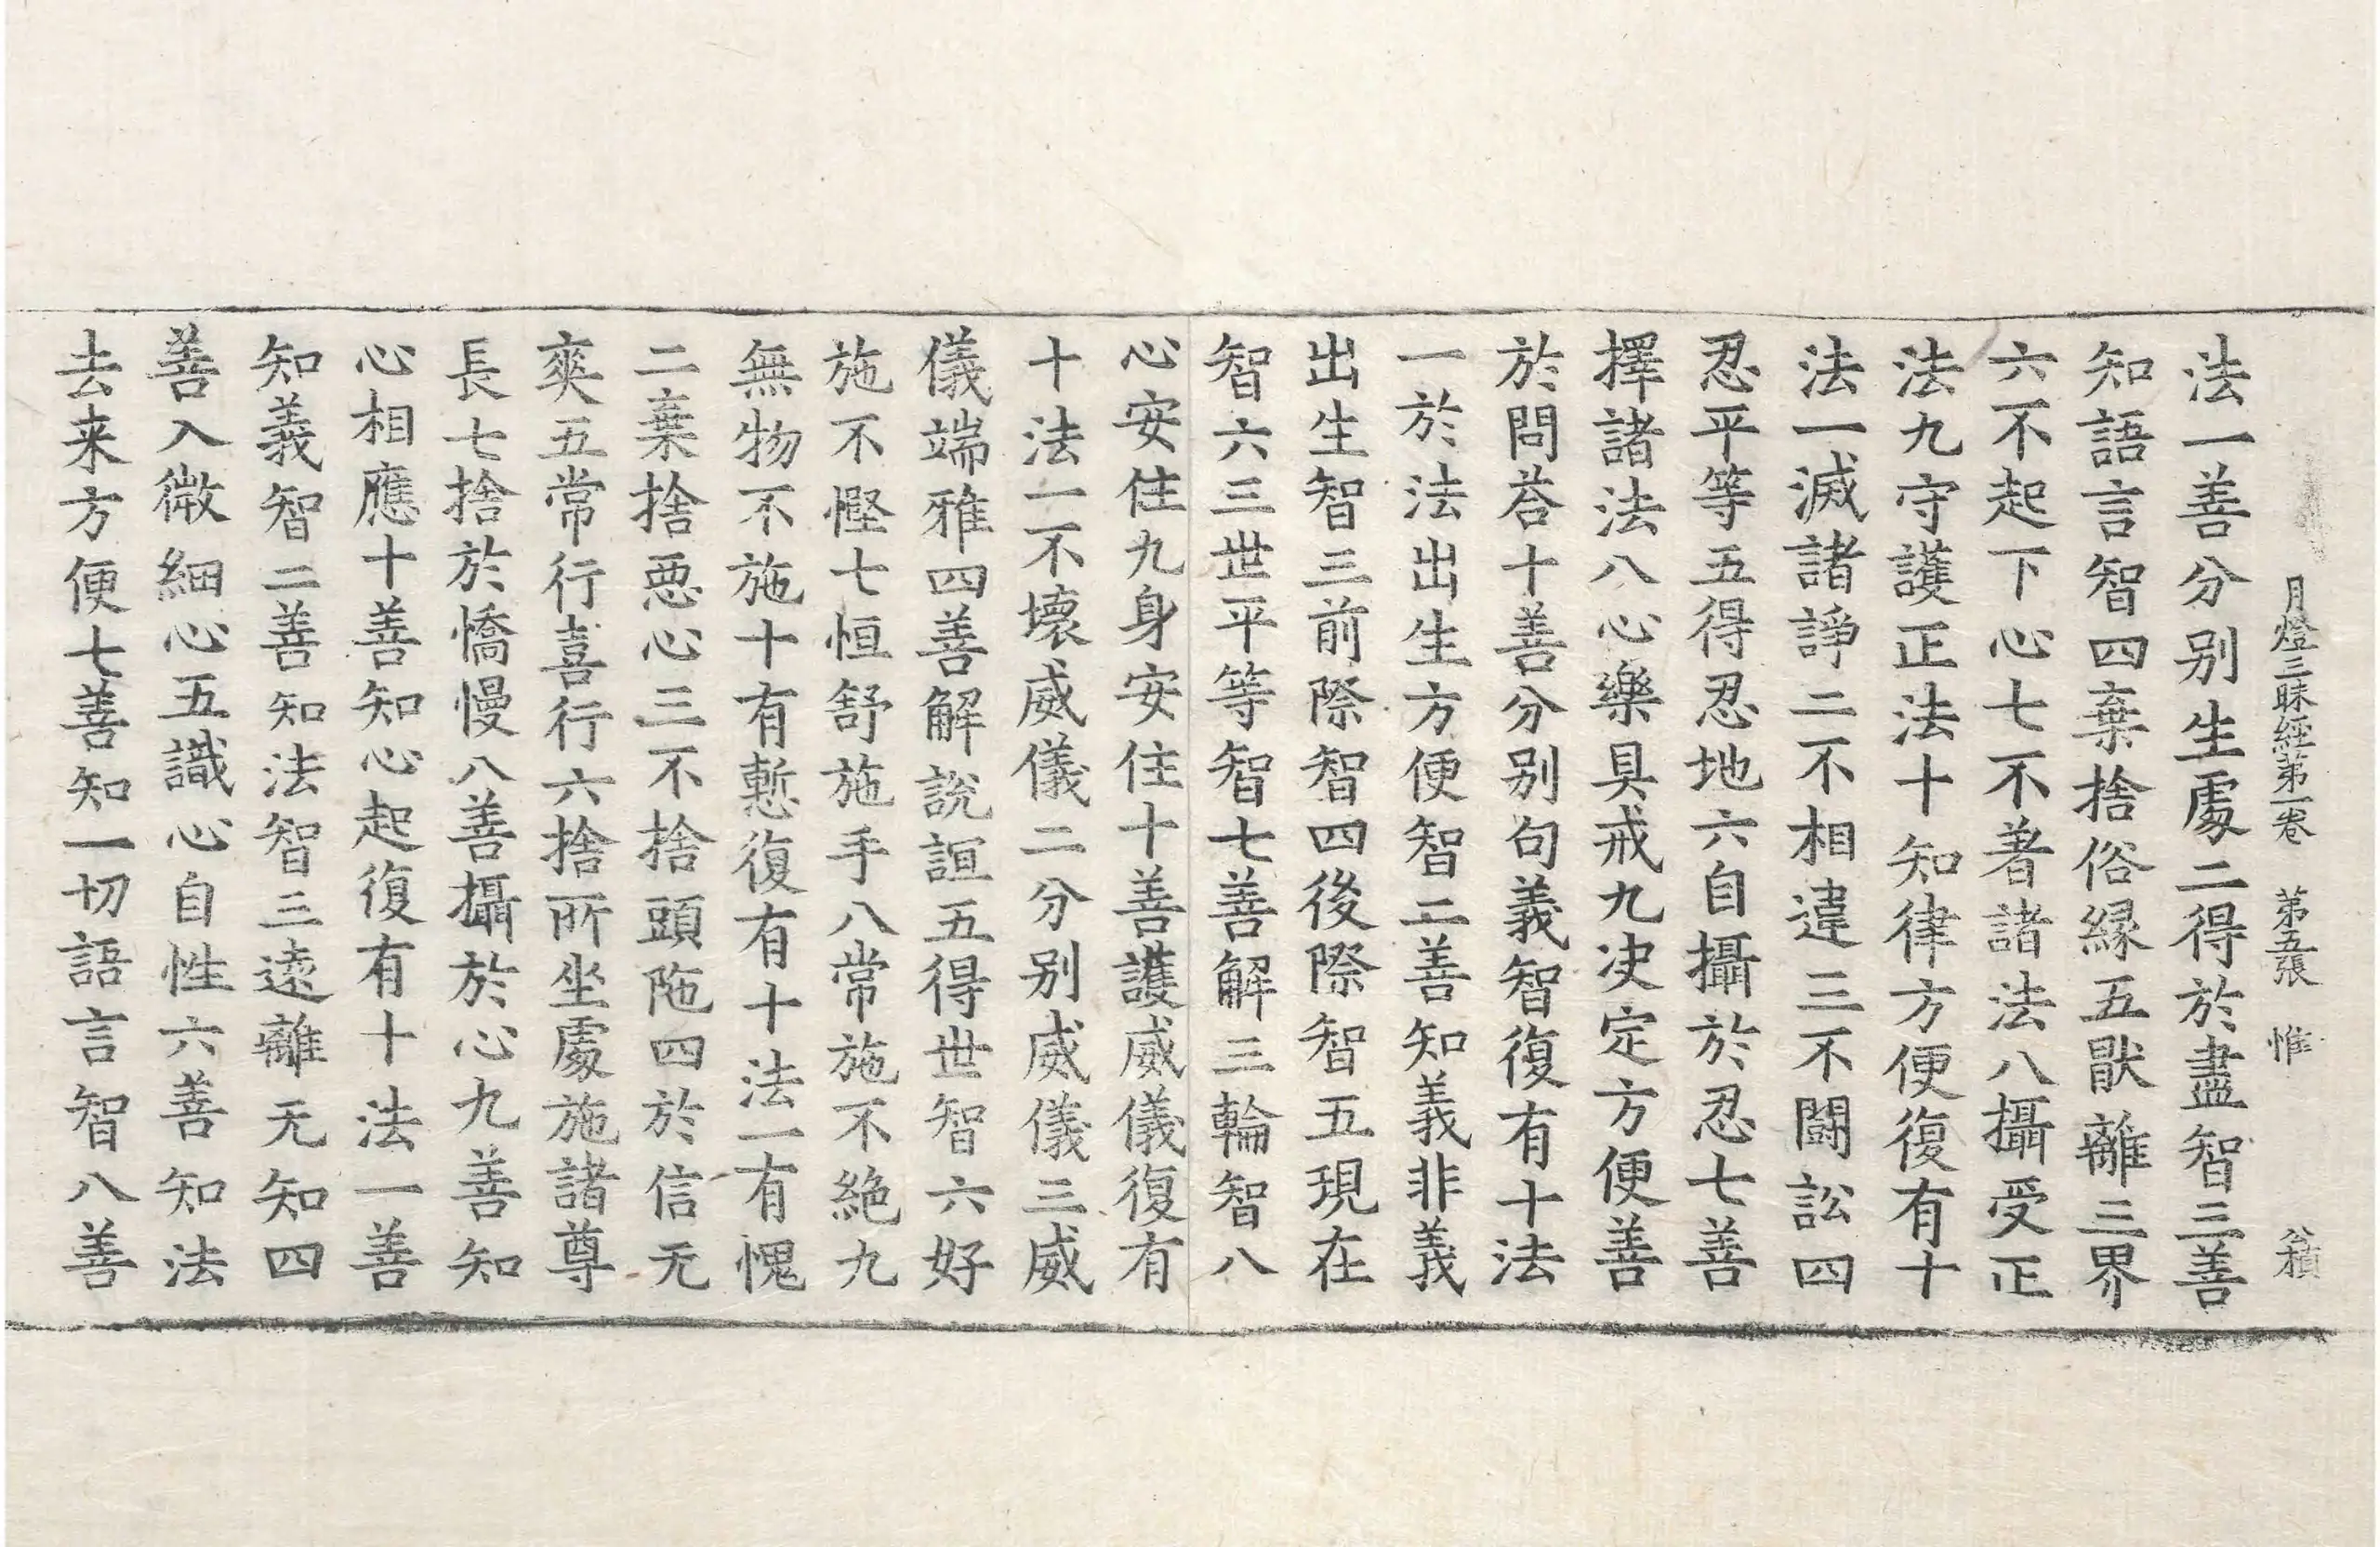 月燈三昧經第一卷 第五張 惟 公積
法一善分別生處二得於盡智三善
知語言智四棄捨俗縁五猒離三界
六不起下心七不著諸法八攝受正
法九守護正法十知律方便復有十
法一滅諸諍二不相違三不鬪訟四
忍平等五得忍地六自攝於忍七善
擇諸法八心樂具戒九决定方便善
於問荅十善分別句義智復有十法
一於法出生方便智二善知義非義
出生智三前際智四後際智五現在
智六三世平等智七善解三輪智八
心安住九身安住十善護威儀復有
十法一不壞威儀二分別威儀三威
儀端雅四善解說誼五得世智六好
施不慳七恒舒施手八常施不絶九
無物不施十有慙復有十法一有愧
二棄捨惡心三不捨頭陁四於信无
爽五常行喜行六捨所坐處施諸尊
長七捨於憍慢八善攝於心九善知
心相應十善知心起復有十法一善
知義智二善知法智三逺離无知四
善入微細心五識心自性六善知法
去来方便七善知一切語言智八善